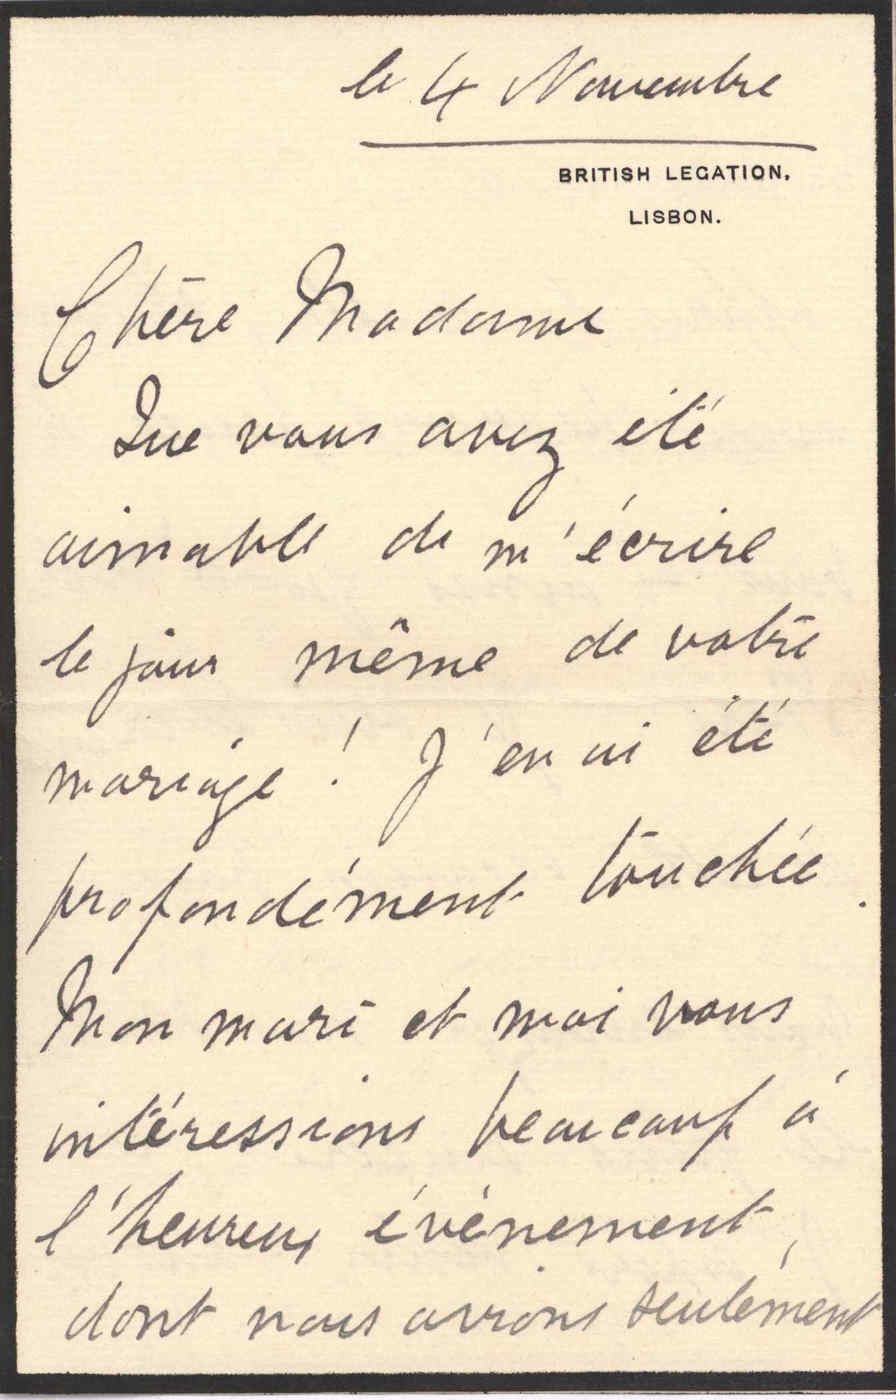 le 4 Novembre
BRITISH LEGATION.
LISBON.
Chère Madame
Que vous avez été
aimable de m'écrire
le jour même de votre
mariage ! J'en ai été
profondément touchée.
Mon mari et moi vous
intéressions beaucoup à
l'heureux événement,
dont nous avions seulement